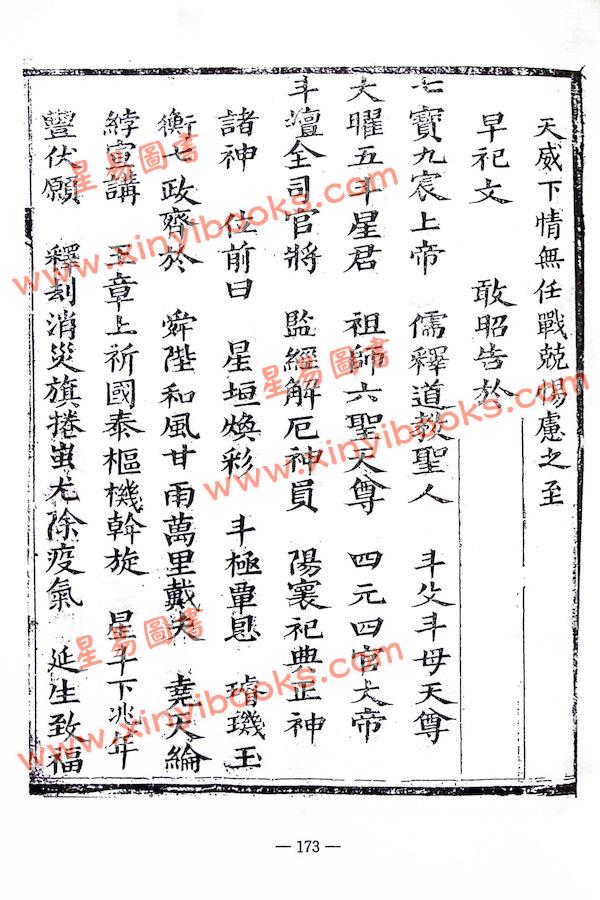 天威下情無任戰兢惕慮之至
早祀文　敢昭告於
七寶九宸上帝　儒釋道教聖人　斗父斗母天尊
大曜五斗星君　祖師六聖天尊　四元四官大帝
斗壇全司官將　監經解厄神員　陽襄祀典正神
諸神　位前曰　星垣煥彩　斗極覃恩　璿璣玉
衡七政齊於　舜陛和風甘雨萬里戴夫　堯天綸
綍宣講　玉章上祈國泰樞機斡旋　星斗下兆年
豐伏願　釋刦消災旗捲蚩尤除疫氣　延生致福
— 173 —
星易圖書
www.xinyibooks.com
星易圖書
www.xinyibooks.com
星易圖書
www.xinyibooks.com